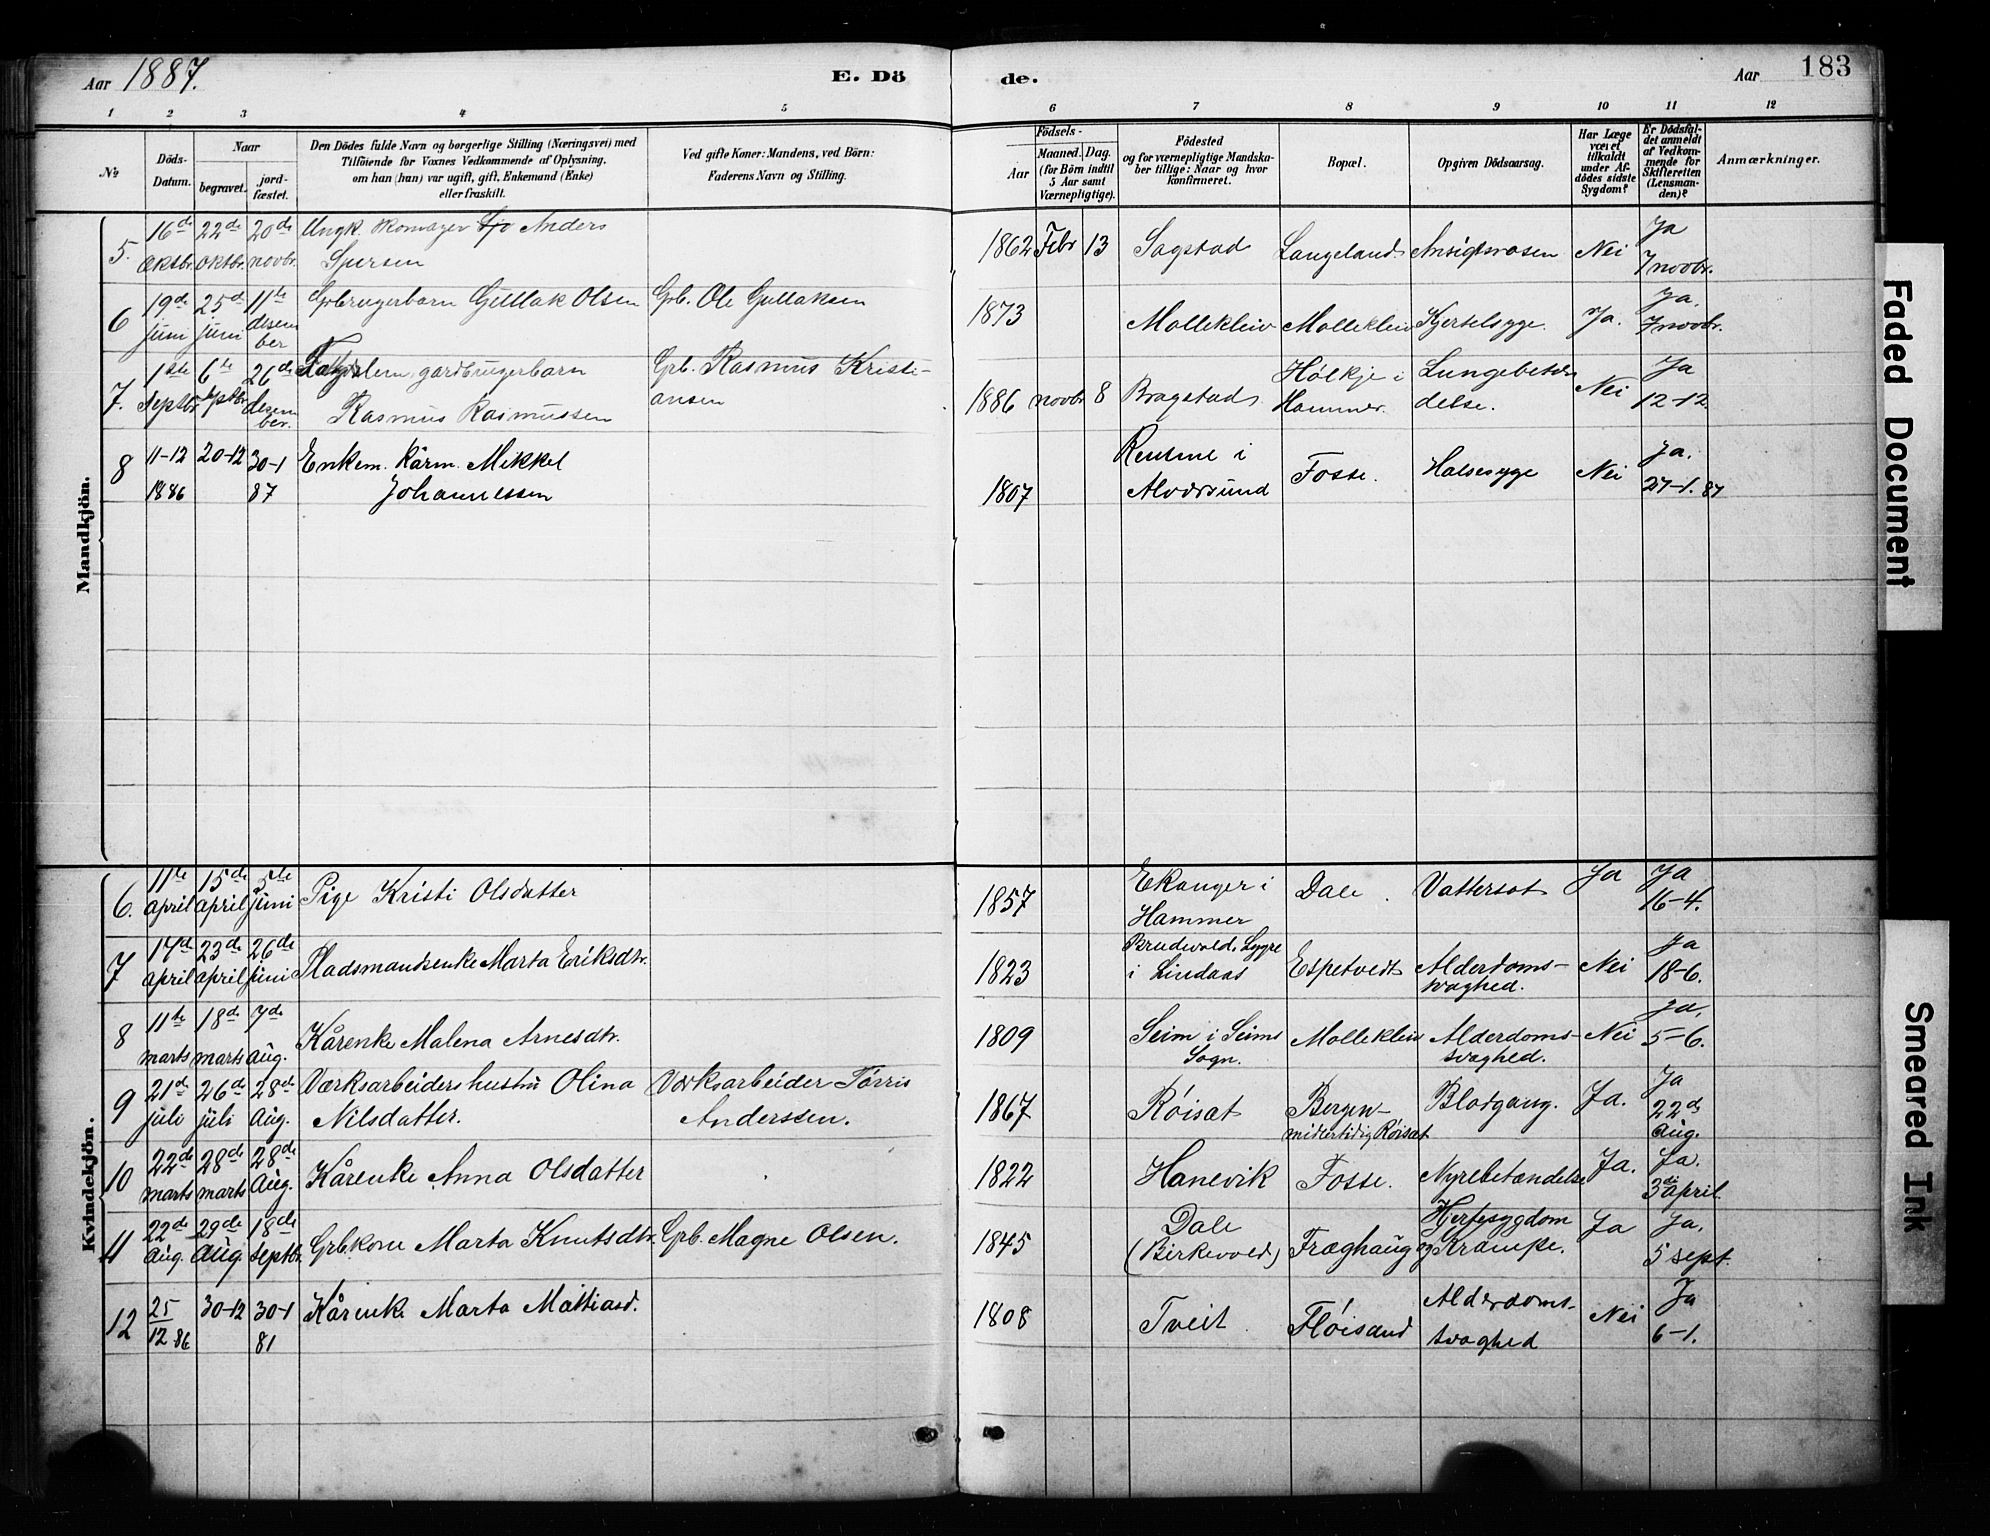 Aar 1887.
E. Dö
de.
Aar
183
1 2 3 4 5 6 7 8 9 10 11 12
No
Döds-
Datum.
Naar
begravet.
jord-
fæstet.
Den Dödes fulde Navn og borgerlige Stilling (Næringsvei) med
Tilföiende for Voxnes Vedkommende af Oplysning,
om han (hun) var ugift, gift, Enkemand (Enke)
eller fraskilt.
Ved gifte Koner: Mandens, ved Börn:
Faderens Navn og Stilling.
Födsels-
Aar
Maaned. Dag.
(for Börn indtil
5 Aar samt
Værnepligtige).
Födested
og for værnepligtige Mandska-
ber tillige: Naar og hvor
konfirmeret.
Bopæl.
Opgiven Dödsaarsag.
Har Læge
været
tilkaldt
under Af-
dödes sidste
Sygdom?
Er Dödsfal-
det anmeldt
af Vedkom-
mende for
Skifteretten
(Lensman-
den)?
Anmærkninger.
Mandkjön.
5. 16de oktbr. 22de oktbr. 20de novbr. Ungk. Anders
1862 Febr 13 Sagstad Langeland Ansigtsrosen Nei Ja
7 novbr.
6 19de juni 25de juni 11te desem
ber
Grbrugerbarn Gullak Olsen Grb. Ole Gullaksen
1873 Mollekleiv Mollekleiv Kjertelsyge. Ja. Ja.
7 novbr.
7. 1ste septbr. 6te septbr. 26de desem
ber.
gardbrugerbarn
Rasmus Rasmussen
Grb. Rasmus Kristi-
ansen
1886 novbr 8 Bragstad Hölkje i
Hammer. Lungebetæn
delse. Nei Ja
12-12.
8 11-12 1886 20-12 30-1 87 Enkem. Kårm. Mikkel
Johannessen
1807 i
Alversund Fosse. Halsesyge Nei Ja.
27-1. 87
Kvindekjön.
6. 11te april 15de april 5te juni Pige Kristi Olsdatter
1857 Ekanger i
Hammer Dale. Vattersot Ja Ja
16-4.
7 17de april 23de april 26de juni Pladsmandsenke Marta Eriksdtr.
1823 Lygre
i Lindaas Espetvedt Alderdoms-
svaghed. Nei Ja
18-6.
8 11te marts 18de marts 7de aug. Kårenke Malena Arnesdtr.
1809 Seim i Seims
Sogn. Mollekleiv Alderdoms-
svaghed. Nei Ja.
5-6.
9 21de juli 26de juli 28de aug. Værksarbeiders hustru Olina
Nilsdatter.
Værksarbeider Törris
Anderssen.
1867 Röisat Bergen-
midlertidig Röisat Blodgang. Ja. Ja
22de
aug.
10 22de marts 28de marts 28de Aug. Kårenke Anna Olsdatter
1822 Hanevik Fosse. Nyrebetændelse Ja. Ja.
3die april.
11 22de aug. 29de aug. 18de septbr. Grbkone Marta Knutsdtr. Grb. Magne Olsen.
1845 Dale
(Birkevold) Fræghaug Hjertesygdom
og Krampe. Ja Ja.
5 sept.
12 25/12 86 30-12 30-1 81 Kårenke Marta Mattiasd.
1808 Tveit Flöisand Alderdoms-
svaghed Nei Ja
6-1.
Faded Document
Smeared Ink